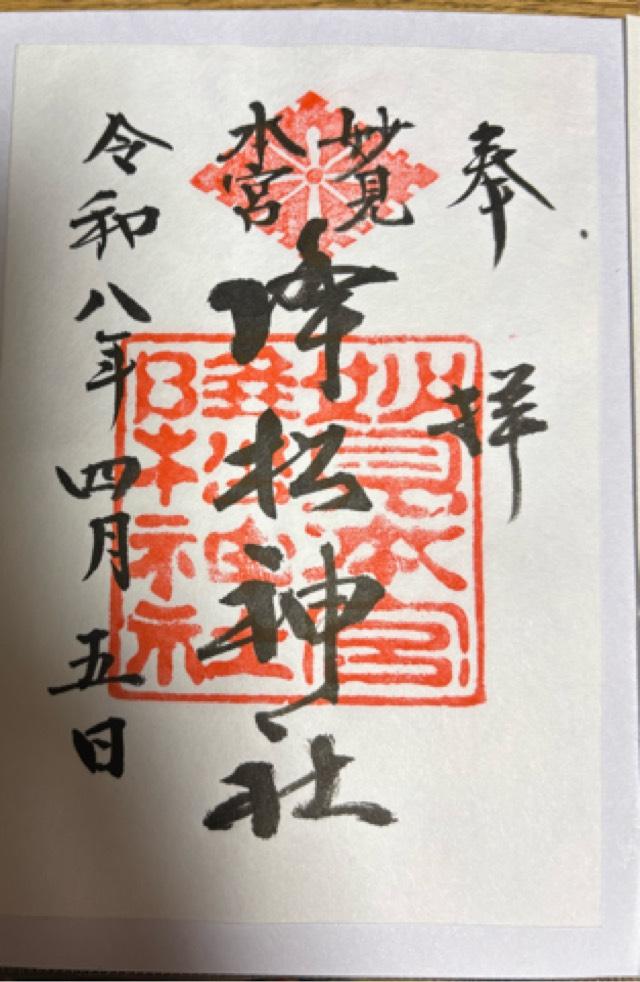 奉拝
妙見
本宮
降松神社
令和八年四月五日
妙見本宮
降松神社